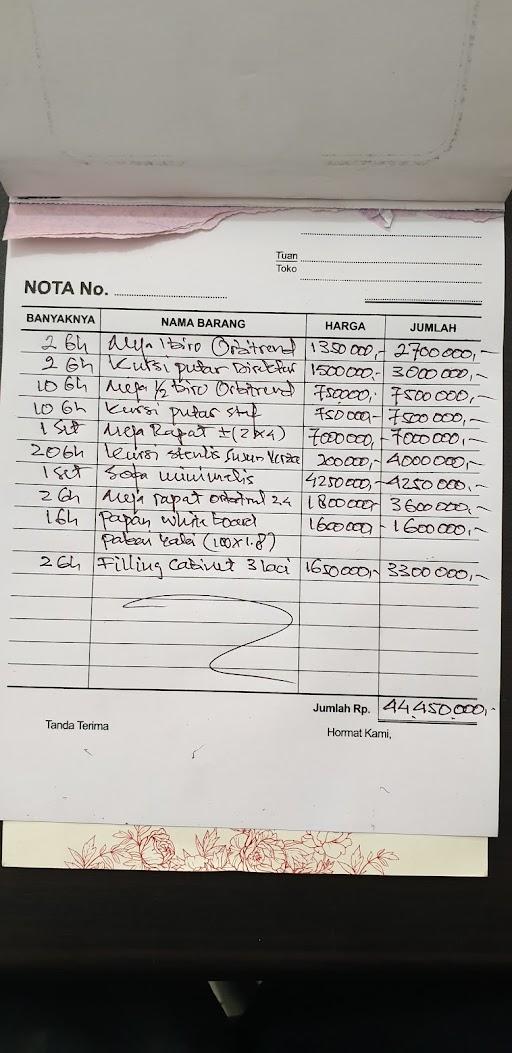 Tuan
Toko
NOTA No.
BANYAKNYA NAMA BARANG HARGA JUMLAH
2 Bh Meja 1 biro Orbitrend 1350 000,- 2700 000,-
2 Bh Kursi putar Direktur 1500 000,- 3000 000,-
10 Bh Meja 1/2 Biro Orbitrend 750.000,- 7500 000,-
10 Bh Kursi putar staf 750 000,- 7500 000,-
1 Set Meja Rapat ± (2x4) 7000 000,- 7000 000,-
20 Bh Kursi stenlis susun 200 000,- 4000 000,-
1 Set Sofa minimalis 4250 000,- 4250 000,-
2 Bh Meja rapat 24 1800 000,- 3600 000,-
1 Bh Papan white board 1600 000 1600 000,-
pakan kaki (100x1.8)
2 Bh Filling Cabinet 3 laci 1650 000,- 3300 000,-
Jumlah Rp. 44.450.000,-
Tanda Terima Hormat Kami,